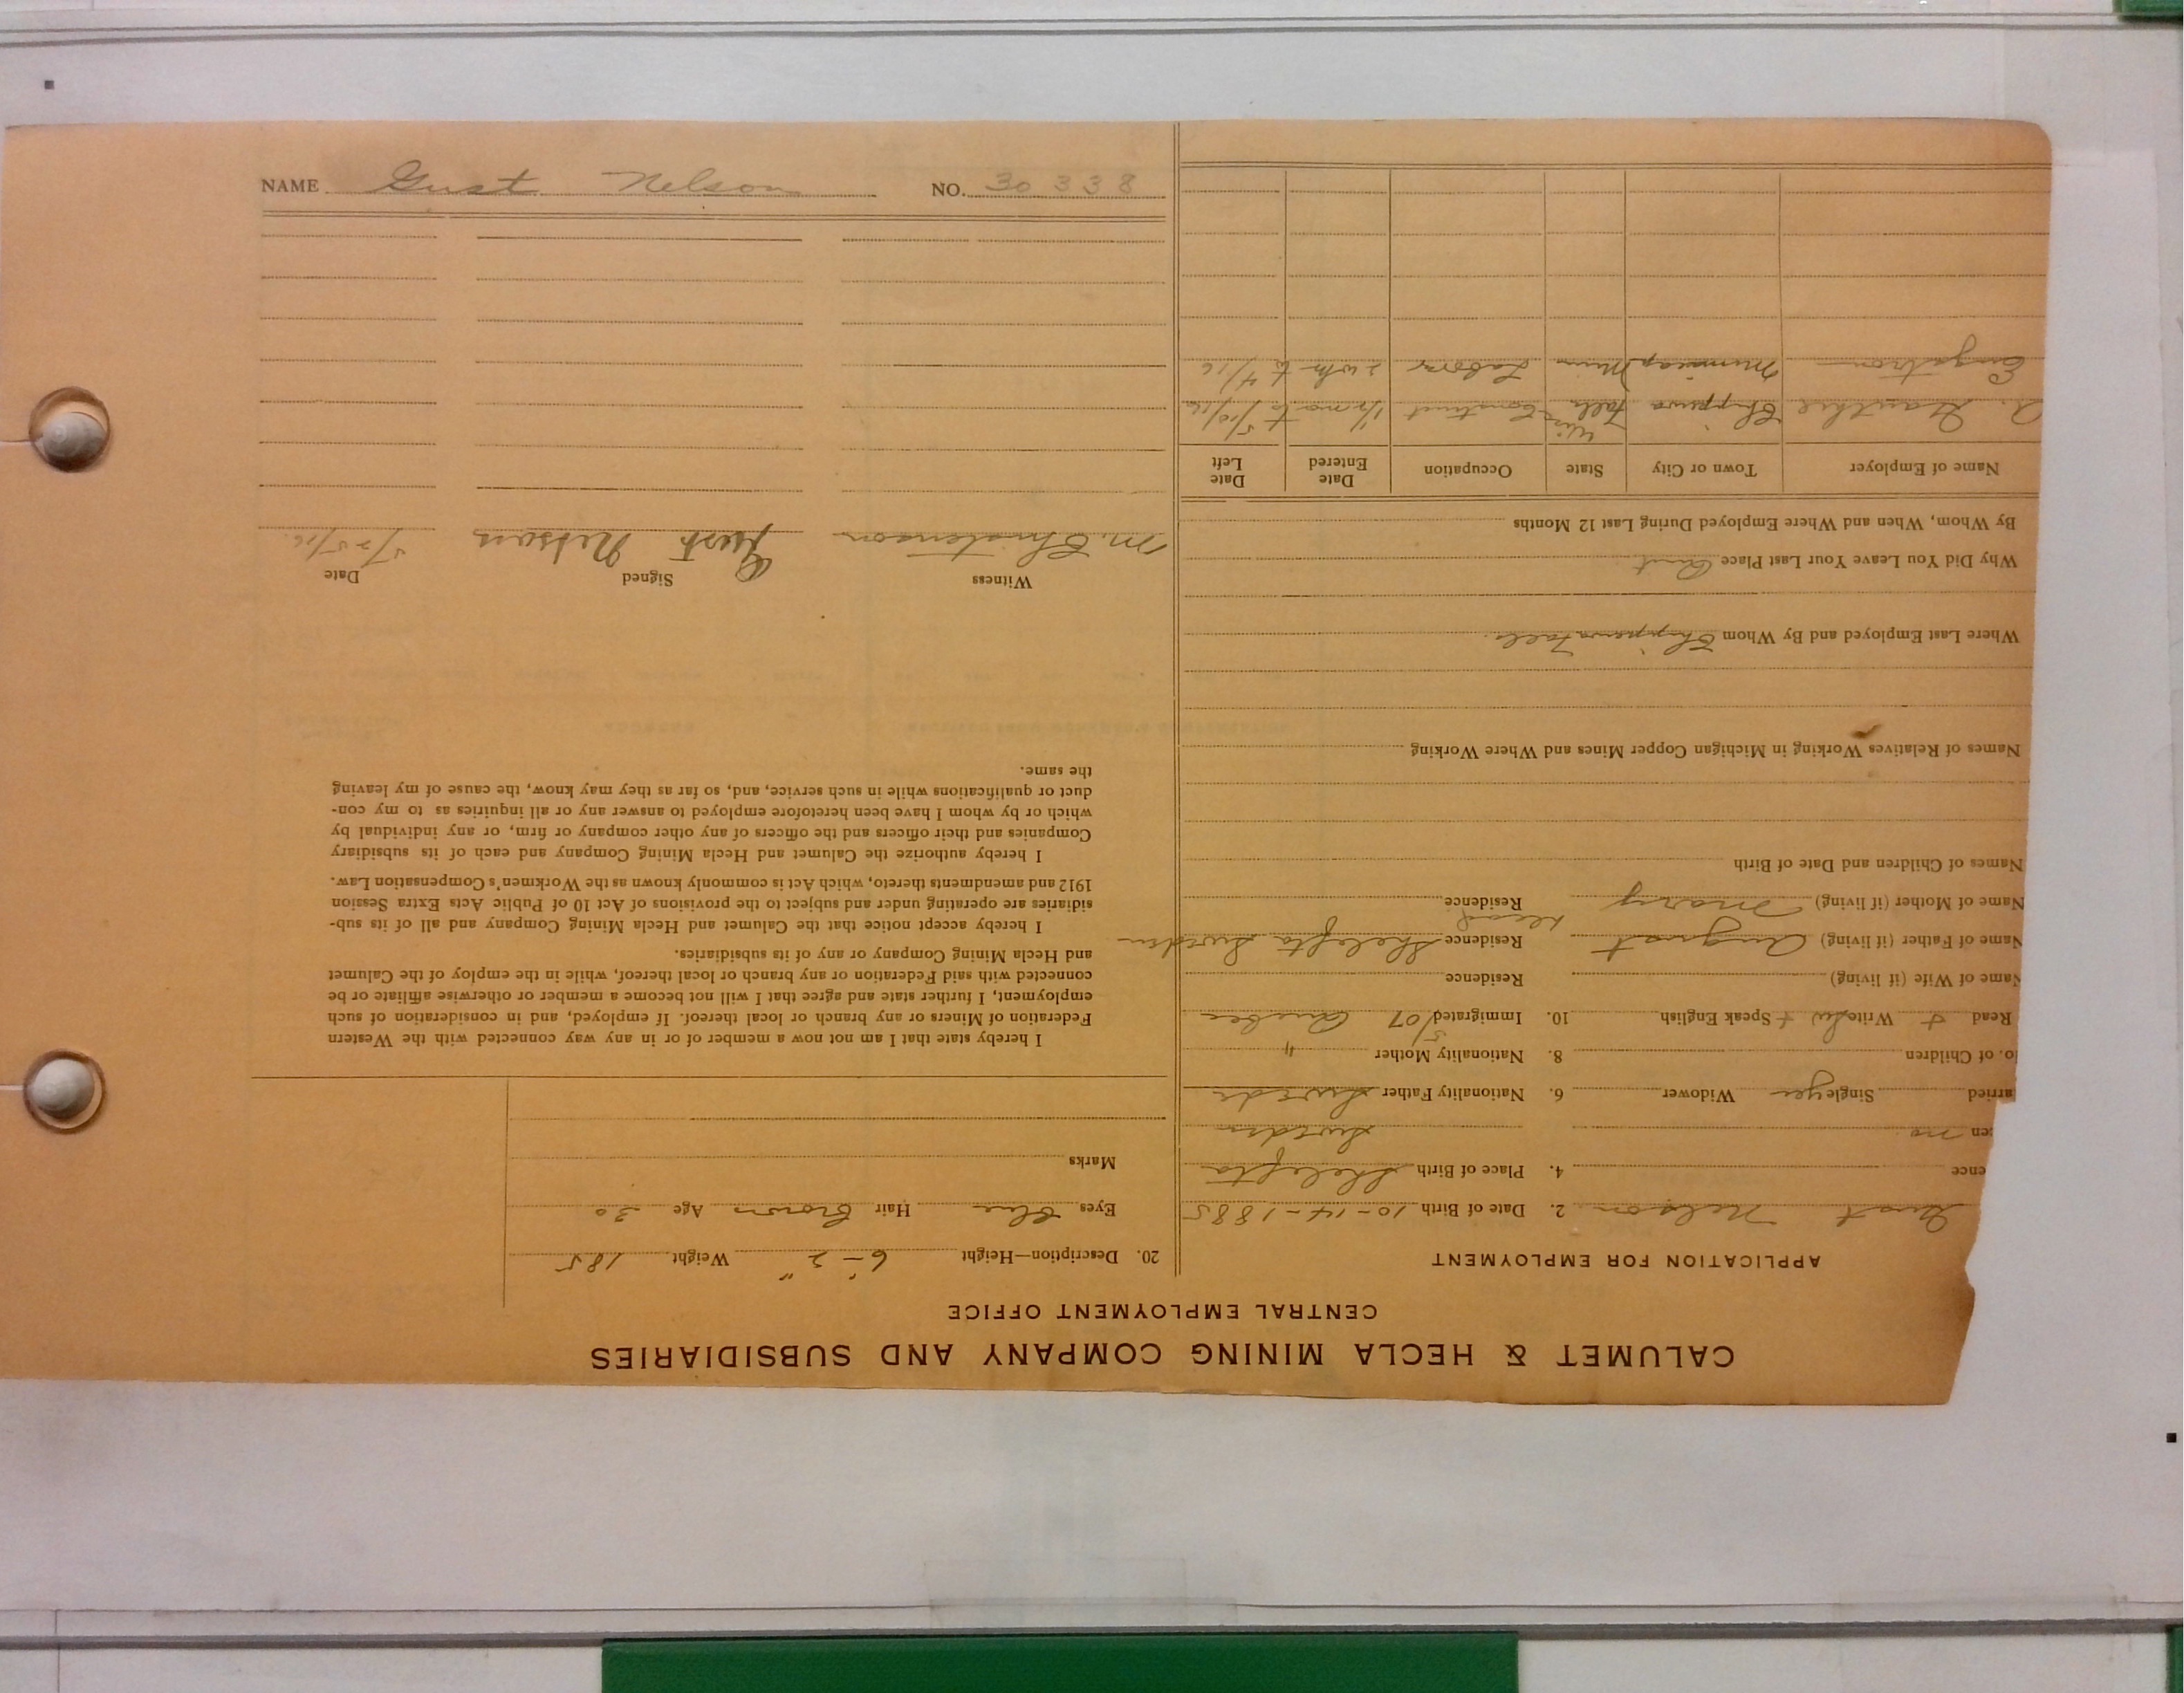 NAME Gust Nelson NO. 30338
CALUMET & HECLA MINING COMPANY AND SUBSIDIARIES
CENTRAL EMPLOYMENT OFFICE
APPLICATION FOR EMPLOYMENT
Gust Nelson 2. Date of Birth 10-14-1885
ence 4. Place of Birth Skelefta
en no Sweden
arried Single yes Widower 6. Nationality Father Swede
o. of Children 8. Nationality Mother "
Read + Write Sw + Speak English 10. Immigrated 5/07
Name of Wife (if living) Residence
Name of Father (if living) August Residence Skelefta Sweden
Name of Mother (if living) Mary dead Residence
Names of Children and Date of Birth
Names of Relatives Working in Michigan Copper Mines and Where Working
Where Last Employed and By Whom Chippewa Falls
Why Did You Leave Your Last Place Quit
By Whom, When and Where Employed During Last 12 Months
Name of Employer Town or City State Occupation Date Entered Date Left
Chippewa Falls Wis Construct 1/2 mo to 5/10/16
Engstrom Minneap Minn Labor 2 wks to 4/16
20. Description—Height 6'-2" Weight 185
Eyes Blue Hair Brown Age 30
Marks
I hereby state that I am not now a member of or in any way connected with the Western
Federation of Miners or any branch or local thereof. If employed, and in consideration of such
employment, I further state and agree that I will not become a member or otherwise affiliate or be
connected with said Federation or any branch or local thereof, while in the employ of the Calumet
and Hecla Mining Company or any of its subsidiaries.
I hereby accept notice that the Calumet and Hecla Mining Company and all of its sub-
sidiaries are operating under and subject to the provisions of Act 10 of Public Acts Extra Session
1912 and amendments thereto, which Act is commonly known as the Workmen's Compensation Law.
I hereby authorize the Calumet and Hecla Mining Company and each of its subsidiary
Companies and their officers and the officers of any other company or firm, or any individual by
which or by whom I have been heretofore employed to answer any or all inquiries as to my con-
duct or qualifications while in such service, and, so far as they may know, the cause of my leaving
the same.
Witness Signed Date
M. Christenson Gust Nelson 5/25/16